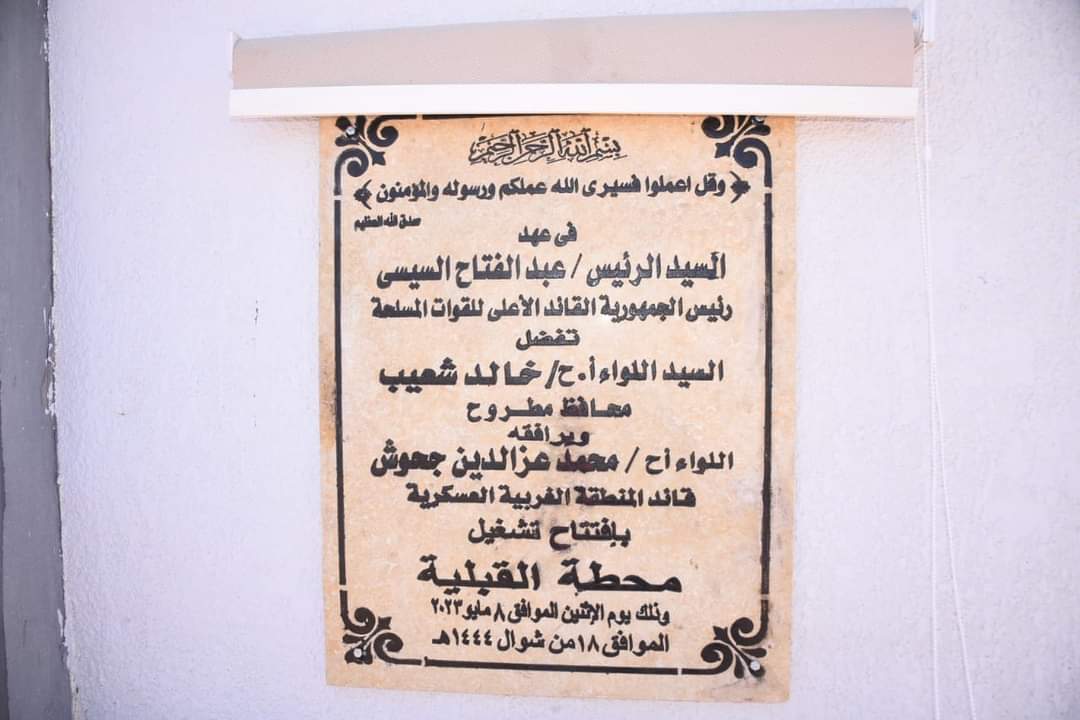 بسم الله الرحمن الرحيم
﴿ وقل اعملوا فسيرى الله عملكم ورسوله والمؤمنون ﴾
صدق الله العظيم
فى عهد
السيد الرئيس / عبد الفتاح السيسى
رئيس الجمهورية القائد الأعلى للقوات المسلحة
تفضل
السيد اللواء أ.ح/ خالد شعيب
محافظ مطروح
ويرافقه
اللواء أح / محمد عزالدين جحوش
قائد المنطقة الغربية العسكرية
بإفتتاح تشغيل
محطة القبلية
وذلك يوم الإثنين الموافق ٨ مايو ٢٠٢٣
الموافق ١٨ من شوال ١٤٤٤هـ